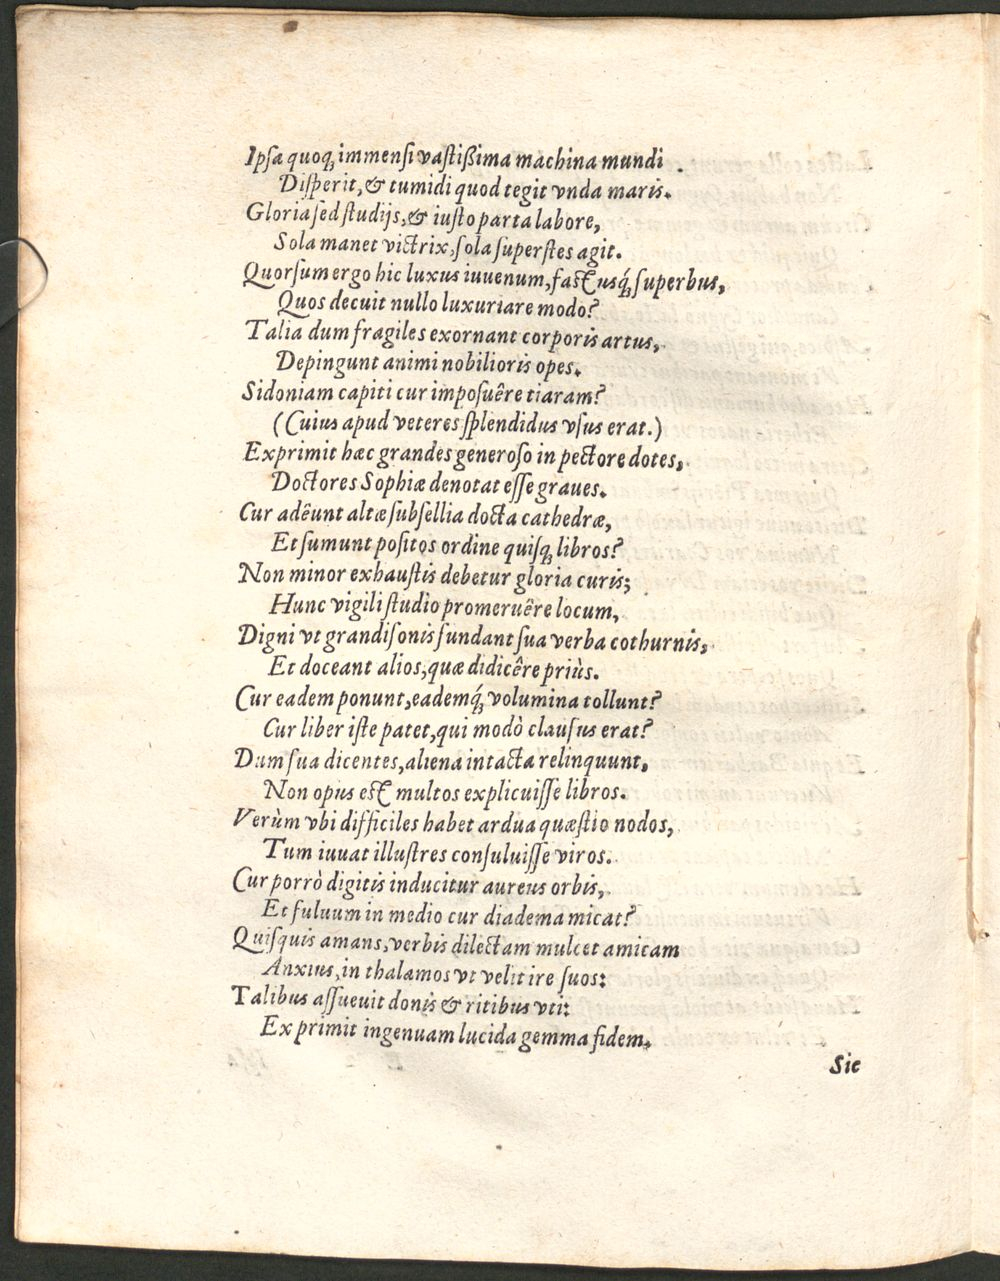 Ipsæ quoq; immensi vastißima machina mundi.
Disperit, & tumidi quod tegit vnda maris.
Gloria sed studijs, & iusto parta labore,
Sola manet victrix, sola superstes agit.
Quorsum ergo hic luxus iuuenum, fastusq́; superbus,
Quos decuit nullo luxuriare modo?
Talia dum fragiles exornant corporis artus,
Depingunt animi nobilioris opes.
Sidoniam capiti cur imposuêre tiaram?
(Cuius apud veteres splendidus vsus erat.)
Exprimit hæc grandes generoso in pectore dotes,
Doctores Sophiæ denotat esse graues.
Cur adêunt altæ subsellia docta cathedræ,
Et sumunt positos ordine quisq; libros?
Non minor exhaustis debetur gloria curis;
Hunc vigili studio promeruêre locum,
Digni vt grandisonis fundant sua verba cothurnis,
Et doceant alios, quæ didicêre priùs.
Cur eadem ponunt, eademq́; volumina tollunt?
Cur liber iste patet, qui modò clausus erat?
Dum sua dicentes, aliena intacta relinquunt,
Non opus est multos explicuisse libros.
Verùm vbi difficiles habet ardua quæstio nodos,
Tum iuuat illustres consuluisse viros.
Cur porrò digitis inducitur aureus orbis,
Et fuluum in medio cur diadema micat?
Quisquis amans, verbis dilectam mulcet amicam
Anxius, in thalamos vt velit ire suos:
Talibus assueuit donis & ritibus vti:
Exprimit ingenuam lucida gemma fidem.
Sic